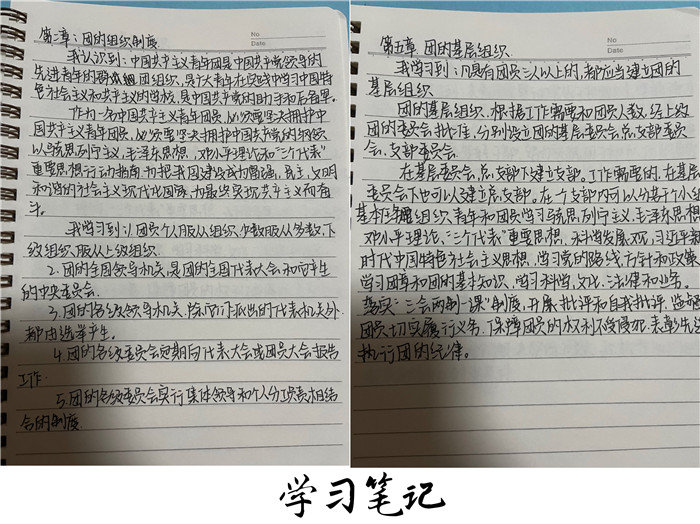 第二章：团的组织制度
No
Date
我认识到：中国共产主义青年团是中国共产党领导的
先进青年的群体组织，是广大青年在实践中学习中国特
色社会主义和共产主义的学校，是中国共产党的助手和后备军。
作为一名中国共产主义青年团员，必须要坚决拥护中
国共产主义青年团，必须要坚决拥护中国共产党的纲领
以马克思列宁主义、毛泽东思想、邓小平理论和"三个代表"
重要思想行动指南，为把我国建设成为富强，民主，文明
和谐的社会主义现代化国家，为最终实现共产主义而奋
斗。
我学习到：1.团员个人服从组织，少数服从多数，下
级组织服从上级组织.
2.团的全国领导机关，是团的全国代表大会和它产生
的中央委员会.
3.团的各级领导机关，除它们派出的代表机关外，
都由选举产生.
4.团的各级委员会定期向代表大会或团员大会报告
工作.
5.团的各级委员会实行集体领导和个人分工负责相结
合的制度
第五章 团的基层组织.
No
Date
我学习到：凡是有团员三人以上的，都应当建立团的
基层组织.
团的基层组织，根据工作需要和团员人数，经上级
团的委员会批准，分别设立团的基层委员会，总支部委员
会，支部委员会.
在基层委员会，总支部下建立支部。工作需要的，在基层
委员会下也可以建立总支部。在一个支部内可以分若干个小组
组织青年和团员学习马克思，列宁主义，毛泽东思想
邓小平理论，"三个代表"重要思想，科学发展观，习近平新
时代中国特色社会主义思想，学习党的路线方针和政策，
学习团章和团的基本知识，学习科学，文化，法律和业务。
落实"三会两制一课"制度，开展批评和自我批评，监督
团员切实履行义务，保障团员的权利不受侵犯，表彰先进
执行团的纪律。
学习笔记